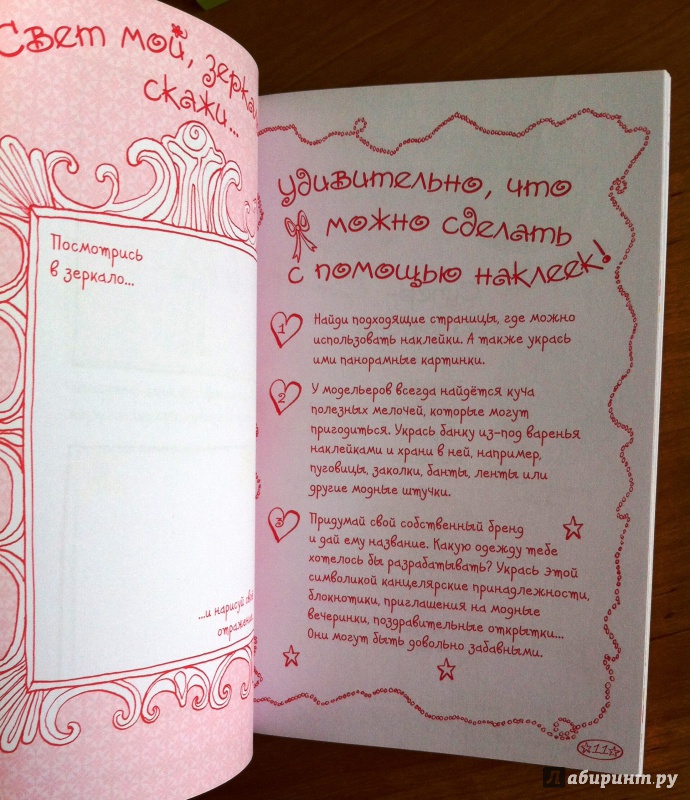 Свет мой,
скажи...
Посмотрись
в зеркало...
...и нарисуй
удивительно, что
можно сделать
с помощью наклеек!
1 Найди подходящие страницы, где можно
использовать наклейки. А также укрась
ими панорамные картинки.
2 У модельеров всегда найдётся куча
полезных мелочей, которые могут
пригодиться. Укрась банку из-под варенья
наклейками и храни в ней, например,
пуговицы, заколки, банты, ленты или
другие модные штучки.
3 Придумай свой собственный бренд
и дай ему название. Какую одежду тебе
хотелось бы разрабатывать? Укрась этой
символикой канцелярские принадлежности,
блокнотики, приглашения на модные
вечеринки, поздравительные открытки...
Они могут быть довольно забавными.
11
Лабиринт.ру